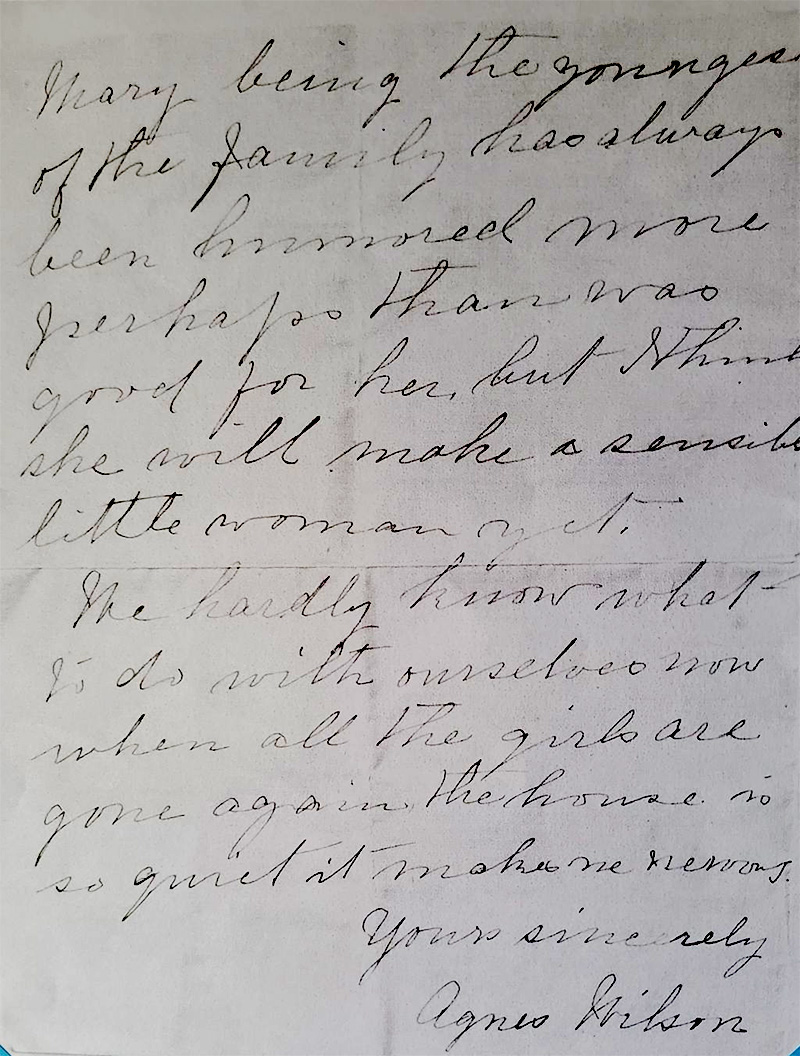 Mary being the younges
of the family has always
been humored more
perhaps than was
good for her, but I think
she will make a sensible
little woman yet.
We hardly know what
to do with ourselves now
when all the girls are
gone again the house is
so quiet it makes me nervous.
Yours sincerely
Agnes Wilson